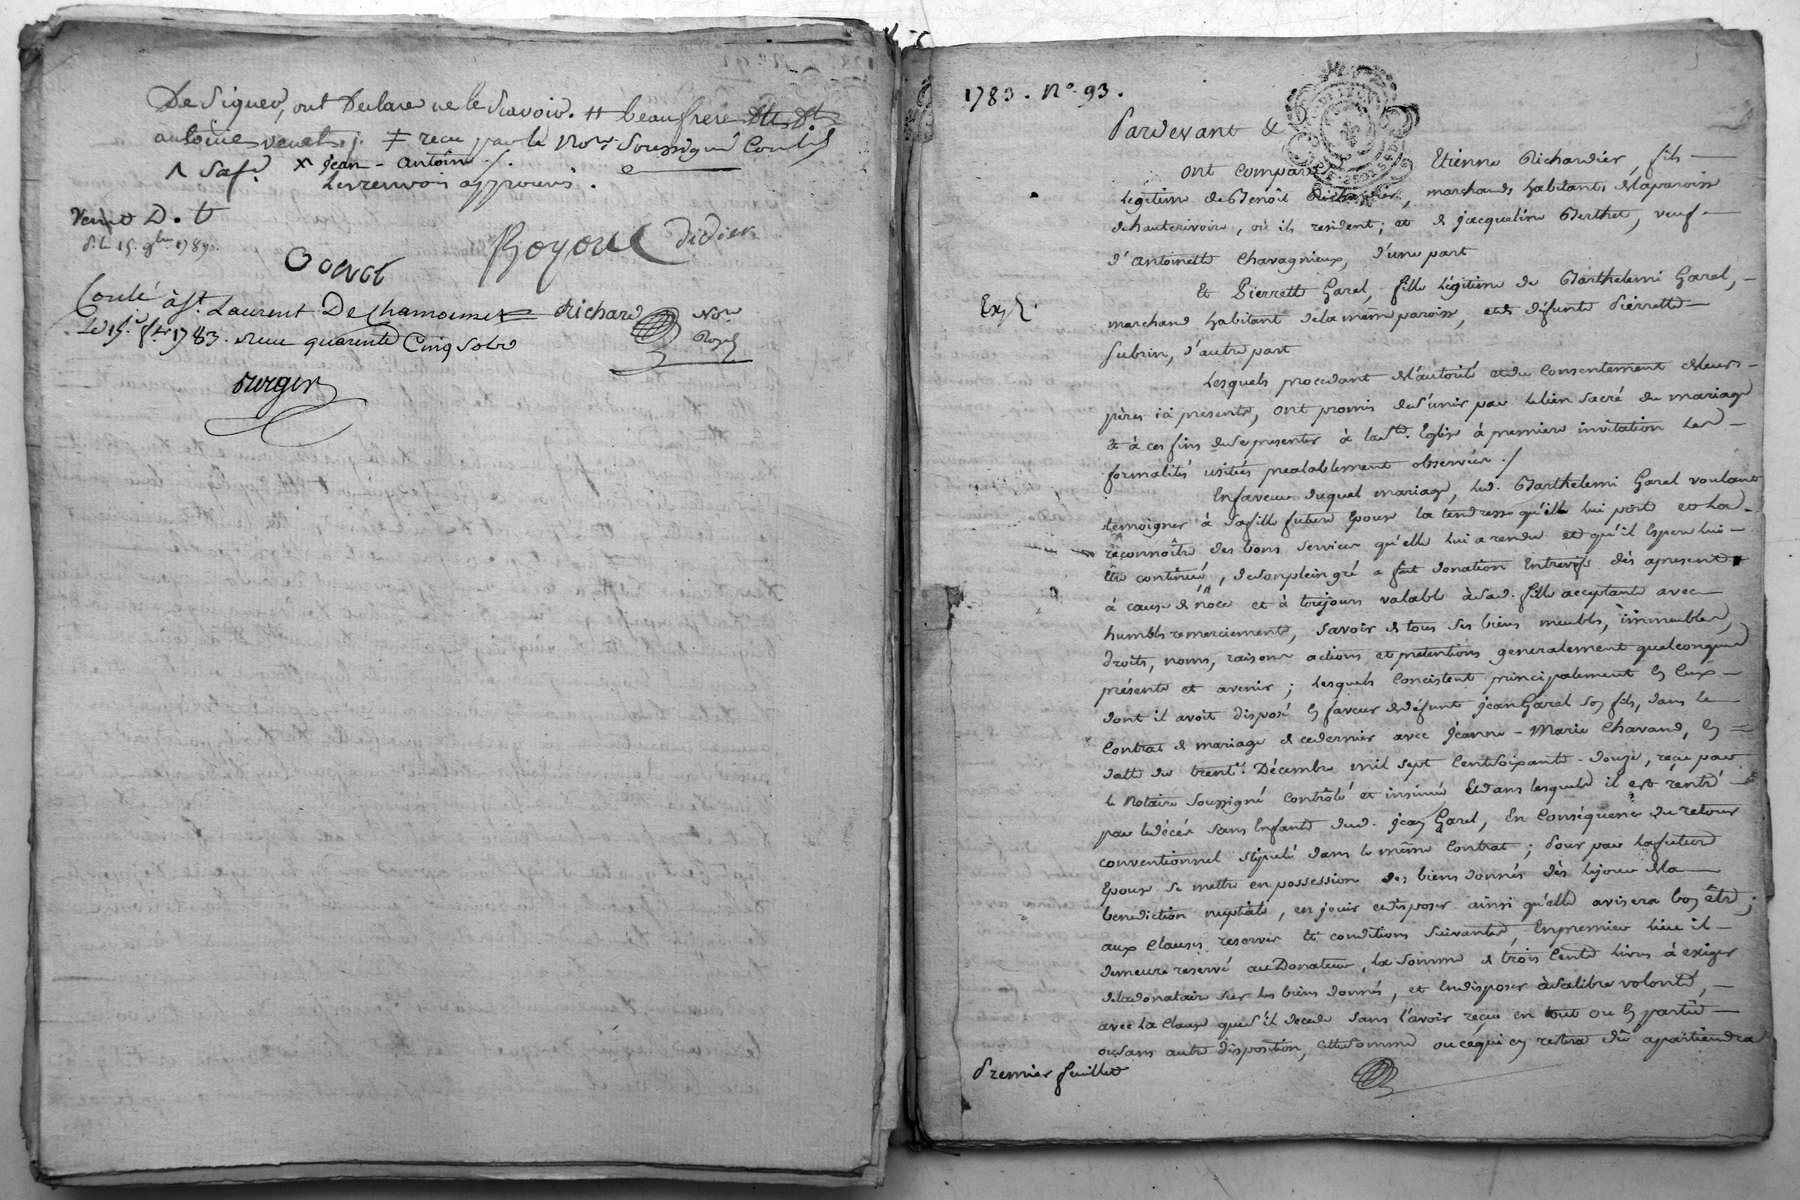 De Signer, ont Declaré ne le Scavoir. # beaufrere
antoine venet ≠ recu par le No.re Soussigné
x jean - antoine ./.
Les renvois approuvés.
vente D. t
d. l. 15. 9bre 1789.
Goenot
Royou Didier
Conlé à St. Laurent De Chamousset Richard No.re
Le 15.e 1783. recu quarente Cinq Sols Royal
Burgin
1783. No. 93.
Pardevant &
ont comparu Etienne Richardier, fils
légitime de Benoît Richardier, marchands habitants de la paroisse
de hauterivoire, où ils resident; et de jacqueline Berthet, veuf
d'antoinette Chavagnieux, d'une part
Et Pierrette Garel, fille légitime de Barthelemi Garel,
Exp.
marchand habitant de la meme paroisse, et de defunte Pierrette
Subrin, d'autre part
Lesquels procedant de l'autorité et du Consentement de leurs
pères ici présents, ont promis de s'unir par le lien sacré du mariage
et à ces fins de se presenter à la Ste. Eglise à premiere invitation les
formalités usitées prealablement observées ./
En faveur duquel mariage, led. Barthelemi Garel voulant
temoigner à sa fille future Epouse la tendresse qu'il lui porte et la
reconnoître des bons services qu'elle lui a rendu et qu'il Espere lui
être continué, de son plein gré a fait donation Entrevifs dès apresent
à cause de noce et à toujours valable à sad. fille acceptante avec
humbles remerciements, savoir de tous ses biens meubles, immeubles,
droits, noms, raisons actions et pretentions generalement quelconques
présents et avenir; lesquels Consistent principalement en Ceux
dont il avoit disposé en faveur de defunt jean Garel son fils, dans le
Contrat de mariage de ce dernier avec jeanne - Marie Chavand, en
datte du trente. Décembre mil sept Cent soixante - douze, reçu par
le Notaire Soussigné Contrôlé et insinué Et dans lesquels il est rentré
par le décès sans Enfants dud. jean Garel, En Conséquence du retour
conventionnel stipulé dans le même Contrat; Pour par la future
Epouse se mettre en possession des biens donnés dès le jour de la
benediction nuptiale, en jouir et disposer ainsi qu'elle avisera bon être;
aux Clauses, reserves Et conditions Suivantes, En premier lieu il
demeure reservé au Donateur, la Somme de trois Cents livres à exiger
de la donataire sur les biens donnés, et En disposer à sa libre volonté,
avec la Clause que s'il decede sans l'avoir reçue en tout ou en partie
ou sans autre disposition, cette somme ou ce qui en restera dû apartiendra
Premier feuillet